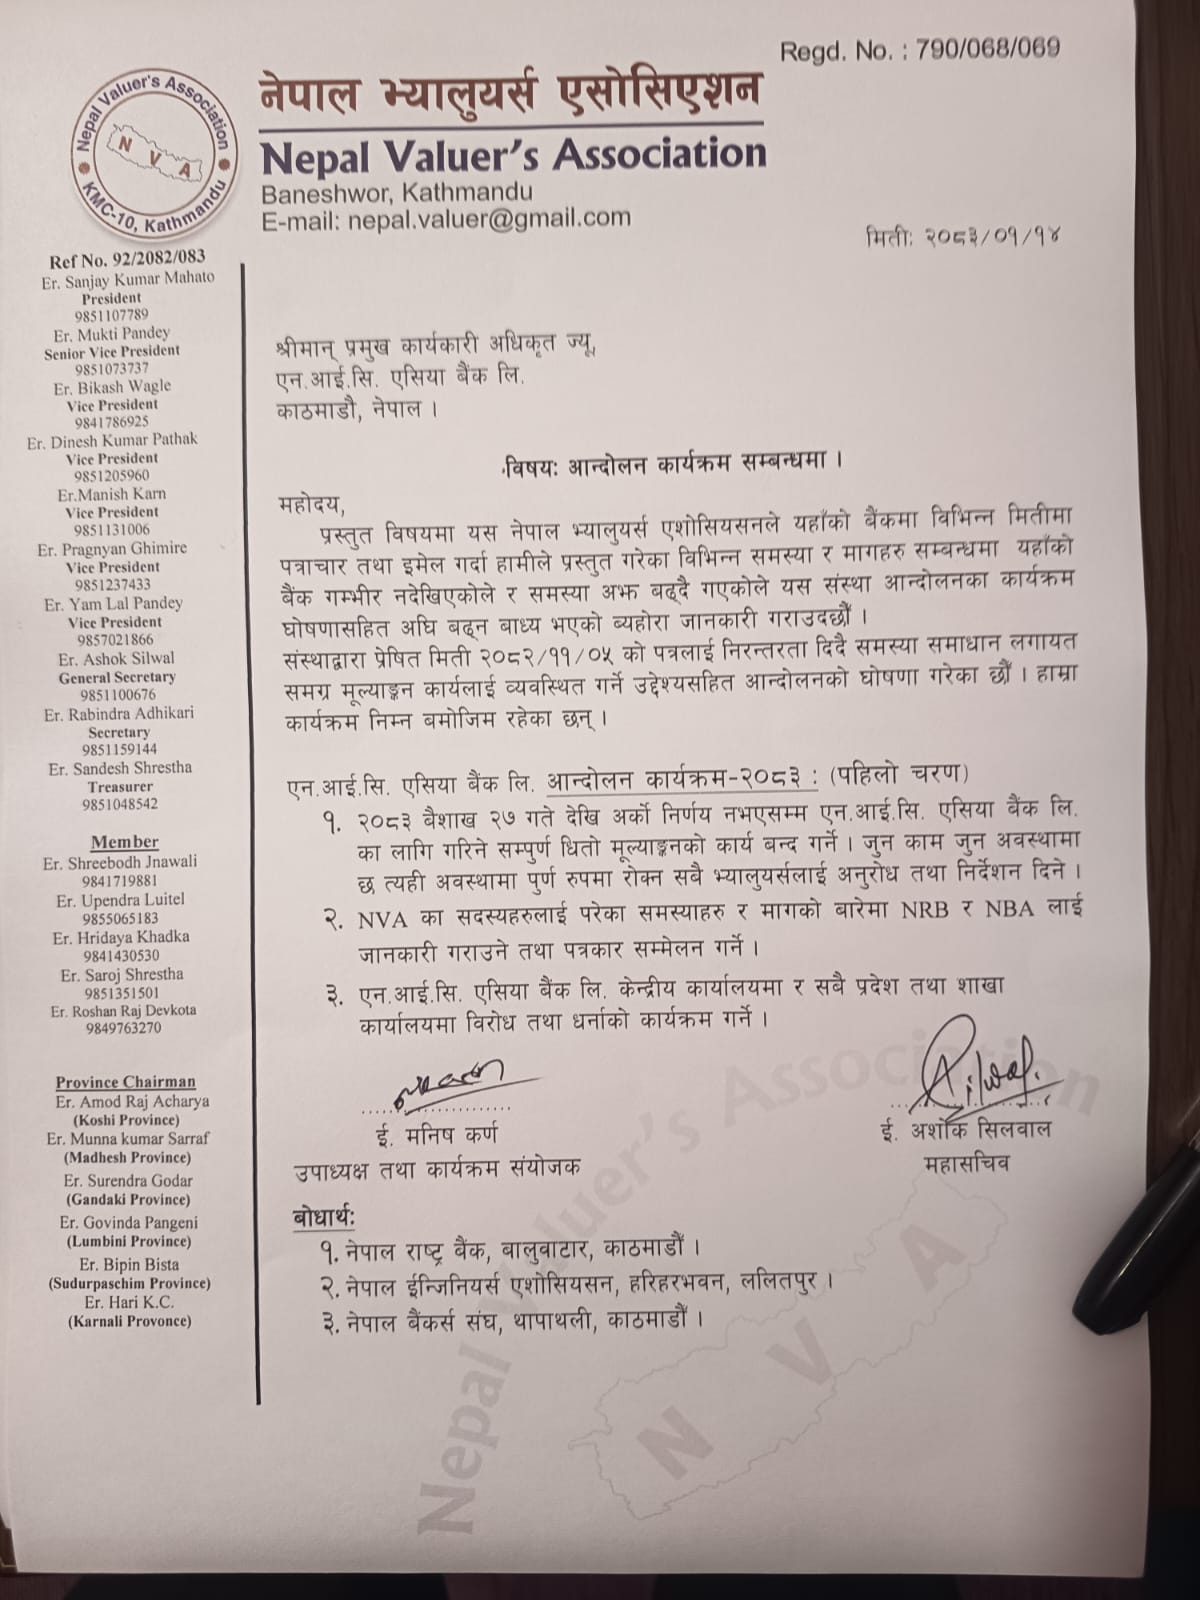 Regd. No. : 790/068/069
Nepal Valuer's Association
N V A
KMC-10, Kathmandu
नेपाल भ्यालुयर्स एसोसिएशन
Nepal Valuer's Association
Baneshwor, Kathmandu
E-mail: nepal.valuer@gmail.com
मिती: २०८३/०१/१४
Ref No. 92/2082/083
Er. Sanjay Kumar Mahato
President
9851107789
Er. Mukti Pandey
Senior Vice President
9851073737
Er. Bikash Wagle
Vice President
9841786925
Er. Dinesh Kumar Pathak
Vice President
9851205960
Er.Manish Karn
Vice President
9851131006
Er. Pragnyan Ghimire
Vice President
9851237433
Er. Yam Lal Pandey
Vice President
9857021866
Er. Ashok Silwal
General Secretary
9851100676
Er. Rabindra Adhikari
Secretary
9851159144
Er. Sandesh Shrestha
Treasurer
9851048542
Member
Er. Shreebodh Jnawali
9841719881
Er. Upendra Luitel
9855065183
Er. Hridaya Khadka
9841430530
Er. Saroj Shrestha
9851351501
Er. Roshan Raj Devkota
9849763270
Province Chairman
Er. Amod Raj Acharya
(Koshi Province)
Er. Munna kumar Sarraf
(Madhesh Province)
Er. Surendra Godar
(Gandaki Province)
Er. Govinda Pangeni
(Lumbini Province)
Er. Bipin Bista
(Sudurpaschim Province)
Er. Hari K.C.
(Karnali Provonce)
श्रीमान् प्रमुख कार्यकारी अधिकृत ज्यू,
एन.आई.सि. एसिया बैंक लि.
काठमाडौ, नेपाल ।
विषय: आन्दोलन कार्यक्रम सम्बन्धमा ।
महोदय,
प्रस्तुत विषयमा यस नेपाल भ्यालुयर्स एशोसियसनले यहाँको बैंकमा विभिन्न मितीमा
पत्राचार तथा इमेल गर्दा हामीले प्रस्तुत गरेका विभिन्न समस्या र मागहरु सम्बन्धमा यहाँको
बैंक गम्भीर नदेखिएकोले र समस्या अझ बढ्दै गएकोले यस संस्था आन्दोलनका कार्यक्रम
घोषणासहित अघि बढ्न बाध्य भएको ब्यहोरा जानकारी गराउदछौँ ।
संस्थाद्वारा प्रेषित मिती २०८२/११/०५ को पत्रलाई निरन्तरता दिदै समस्या समाधान लगायत
समग्र मूल्याङ्कन कार्यलाई व्यवस्थित गर्ने उद्देश्यसहित आन्दोलनको घोषणा गरेका छौं । हाम्रा
कार्यक्रम निम्न बमोजिम रहेका छन् ।
एन.आई.सि. एसिया बैंक लि. आन्दोलन कार्यक्रम-२०८३ : (पहिलो चरण)
१. २०८३ बैशाख २७ गते देखि अर्को निर्णय नभएसम्म एन.आई.सि. एसिया बैंक लि.
का लागि गरिने सम्पुर्ण धितो मूल्याङ्कनको कार्य बन्द गर्ने । जुन काम जुन अवस्थामा
छ त्यही अवस्थामा पुर्ण रुपमा रोक्न सबै भ्यालुयर्सलाई अनुरोध तथा निर्देशन दिने ।
२. NVA का सदस्यहरुलाई परेका समस्याहरु र मागको बारेमा NRB र NBA लाई
जानकारी गराउने तथा पत्रकार सम्मेलन गर्ने ।
३. एन.आई.सि. एसिया बैंक लि. केन्द्रीय कार्यालयमा र सबै प्रदेश तथा शाखा
कार्यालयमा विरोध तथा धर्नाको कार्यक्रम गर्ने ।
ई. मनिष कर्ण
उपाध्यक्ष तथा कार्यक्रम संयोजक
ई. अशोक सिलवाल
महासचिव
बोधार्थ:
१. नेपाल राष्ट्र बैंक, बालुवाटार, काठमाडौं ।
२. नेपाल ईन्जिनियर्स एशोसियसन, हरिहरभवन, ललितपुर ।
३. नेपाल बैंकर्स संघ, थापाथली, काठमाडौं ।
Nepal Valuer's Association
N V A